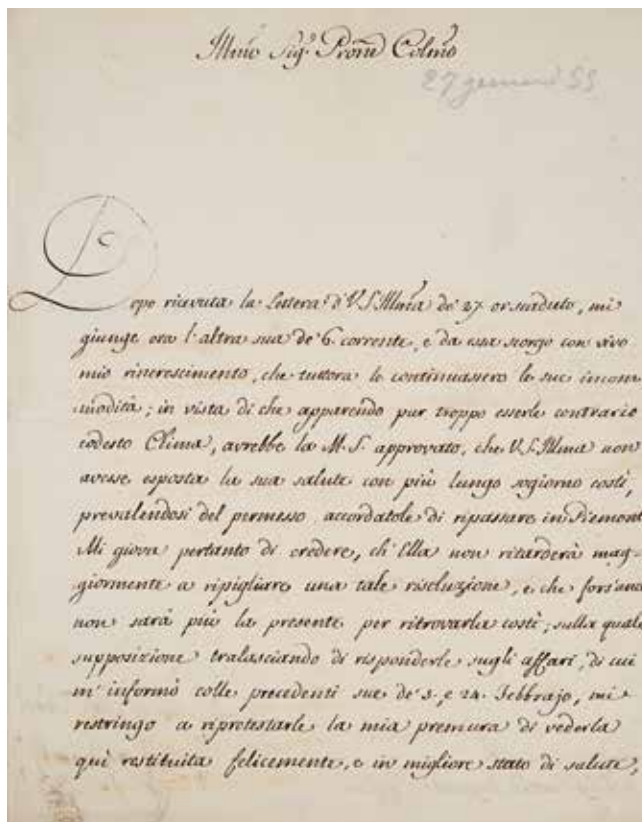 Illmo Sig.r Prone Colmo
27 gennaio 55
Dopo ricevuta la Lettera di V.S. Illma de' 27. or scaduto, mi
giunge ora l'altra sua de' 6. corrente, e da essa scorgo con vivo
mio rincrescimento, che tuttora le continuassero le sue incom
modità; in vista di che apparendo pur troppo esserle contrario
codesto Clima, avrebbe la M.S. approvato, che V.S. Illma non
avesse esposta la sua salute con più lungo sogiorno costì,
prevalendosi del permesso accordatole di ripassare in Piemont
Mi giova pertanto di credere, ch'Ella non ritarderà mag-
giormente a ripigliare una tale risoluzione, e che fors'anc
non sarà più la presente per ritrovarla costì; sulla quale
supposizione tralasciando di risponderle sugli affari, di cui
m'informò colle precedenti sue de' 3., e 24. Febbrajo, mi
restringo a riprotestarle la mia premura di vederla
quì restituita felicemente, e in migliore stato di salute,